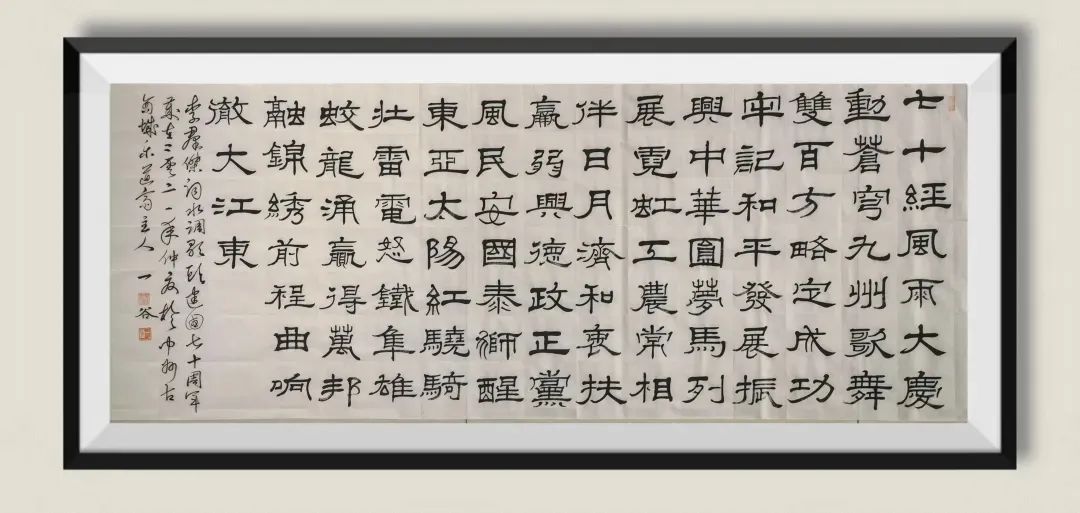 七十經風雨大慶
動蒼穹九州歌舞
雙百方略定成功
牢記和平發展振
興中華圓夢馬列
展霓虹工農常相
伴日月濟和衷扶
羸弱興德政正黨
風民安國泰獅醒
東亞太陽紅驍騎
壯雷電怒鐵隼雄
蛟龍涌贏得萬邦
融錦綉前程曲响
徹大江東
李群傑詞水調歌頭建國七十周年
歲在二零二一年仲夏於中州古
商城乐道齋主人一谷